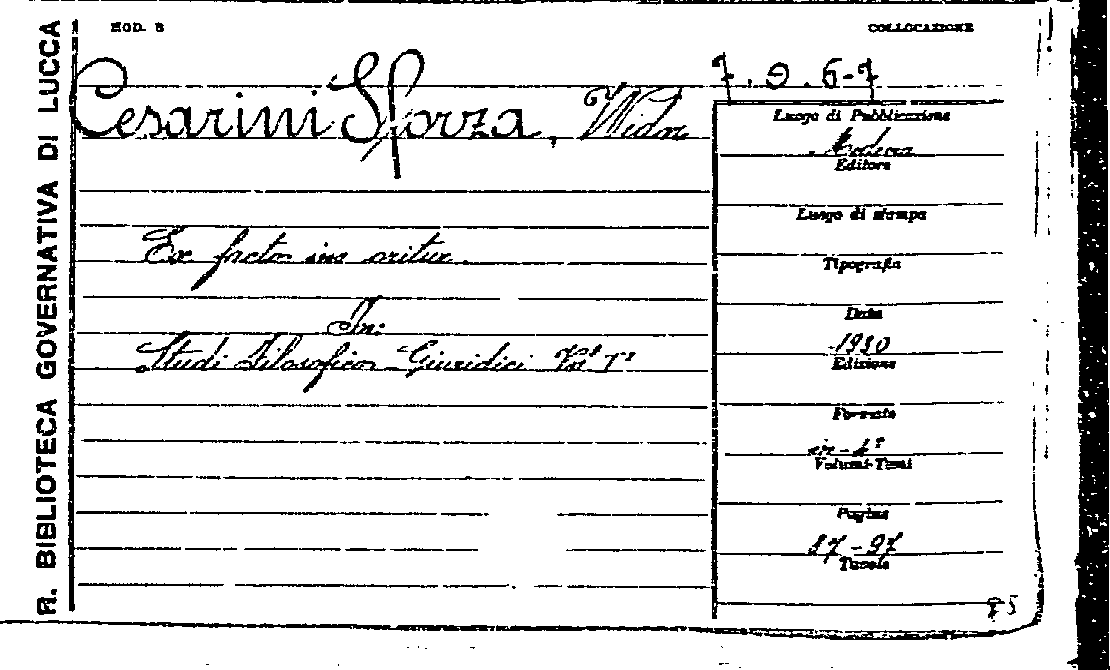 R. BIBLIOTECA GOVERNATIVA DI LUCCA
MOD. B
COLLOCAZIONE
7.9.6-7
Cesarini Sforza, Widar
Ex facto ius oritur.
In:
Studi Filosofico-Giuridici Vol I°
Luogo di Pubblicazione
Modena
Editore
Luogo di stampa
Tipografia
Data
1930
Edizione
Formato
in-4°
Volumi-Tomi
Pagine
87-97
Tavole